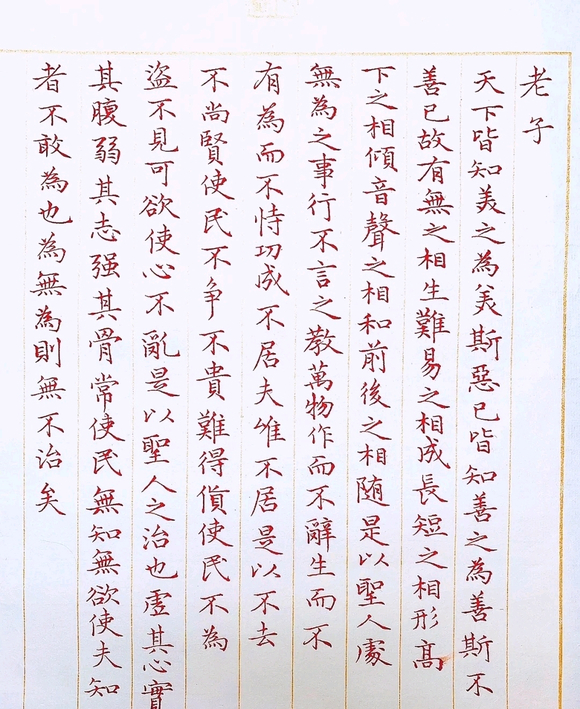 老子
天下皆知美之為美斯惡已皆知善之為善斯不
善已故有無之相生難易之相成長短之相形高
下之相傾音聲之相和前後之相随是以聖人處
無為之事行不言之教萬物作而不辭生而不
有為而不恃功成不居夫唯不居是以不去
不尚賢使民不争不貴難得貨使民不為
盜不見可欲使心不亂是以聖人之治也虛其心實
其腹弱其志强其骨常使民無知無欲使夫知
者不敢為也為無為則無不治矣